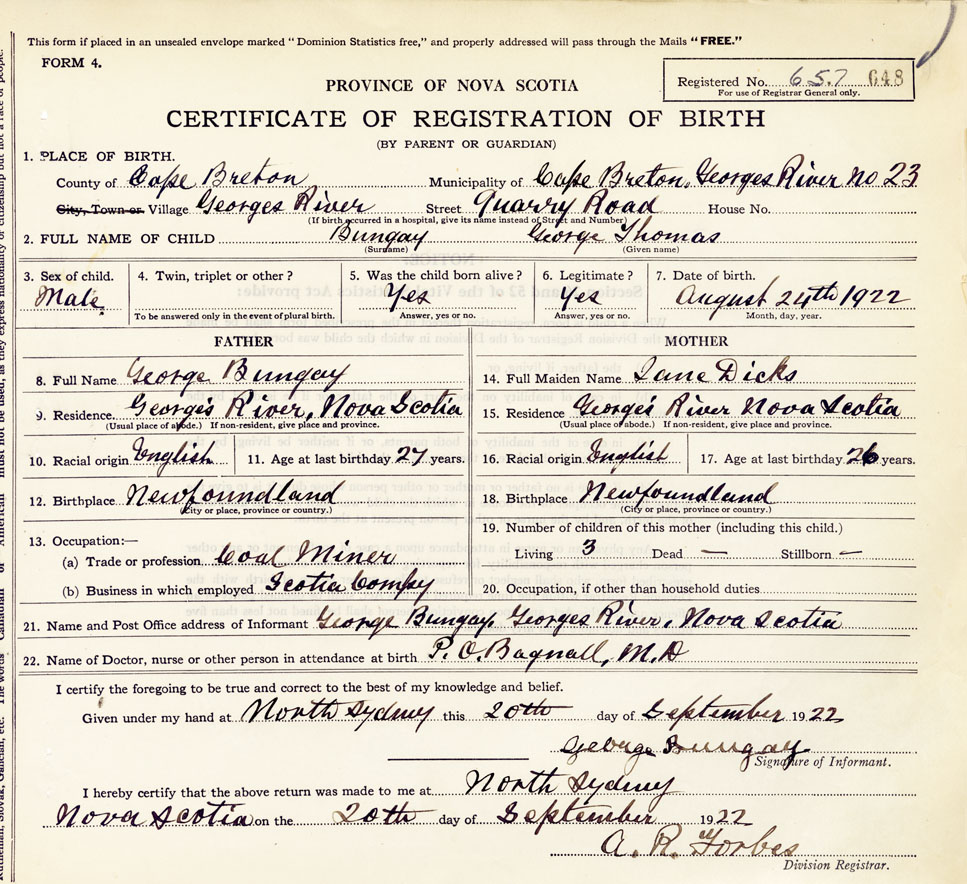 This form if placed in an unsealed envelope marked "Dominion Statistics free," and properly addressed will pass through the Mails "FREE."
FORM 4.
Registered No. 657 648
For use of Registrar General only.
PROVINCE OF NOVA SCOTIA
CERTIFICATE OF REGISTRATION OF BIRTH
(BY PARENT OR GUARDIAN)
1. PLACE OF BIRTH.
County of Cape Breton Municipality of Cape Breton, Georges River No 23
City, Town or Village Georges River Street Quarry Road House No.
(If birth occurred in a hospital, give its name instead of Street and Number)
2. FULL NAME OF CHILD Bungay George Thomas
(Surname) (Given name)
3. Sex of child. 4. Twin, triplet or other? 5. Was the child born alive? 6. Legitimate? 7. Date of birth.
Male Yes Yes August 24th 1922
To be answered only in the event of plural birth. Answer, yes or no. Answer, yes or no. Month, day, year.
FATHER MOTHER
8. Full Name George Bungay 14. Full Maiden Name Jane Dicks
9. Residence George's River, Nova Scotia 15. Residence George's River Nova Scotia
(Usual place of abode.) If non-resident, give place and province. (Usual place of abode.) If non-resident, give place and province.
10. Racial origin English 11. Age at last birthday 27 years. 16. Racial origin English 17. Age at last birthday 26 years.
12. Birthplace Newfoundland 18. Birthplace Newfoundland
(City or place, province or country.) (City or place, province or country.)
13. Occupation:— 19. Number of children of this mother (including this child.)
(a) Trade or profession Coal Miner Living 3 Dead — Stillborn —
(b) Business in which employed Scotia Compy 20. Occupation, if other than household duties
21. Name and Post Office address of Informant George Bungay, Georges River, Nova Scotia
22. Name of Doctor, nurse or other person in attendance at birth P. O. Bagnall, M.D
I certify the foregoing to be true and correct to the best of my knowledge and belief.
Given under my hand at North Sydney this 20th day of September 1922
George Bungay
Signature of Informant.
I hereby certify that the above return was made to me at North Sydney
Nova Scotia on the 20th day of September 1922
A. R. Forbes
Division Registrar.